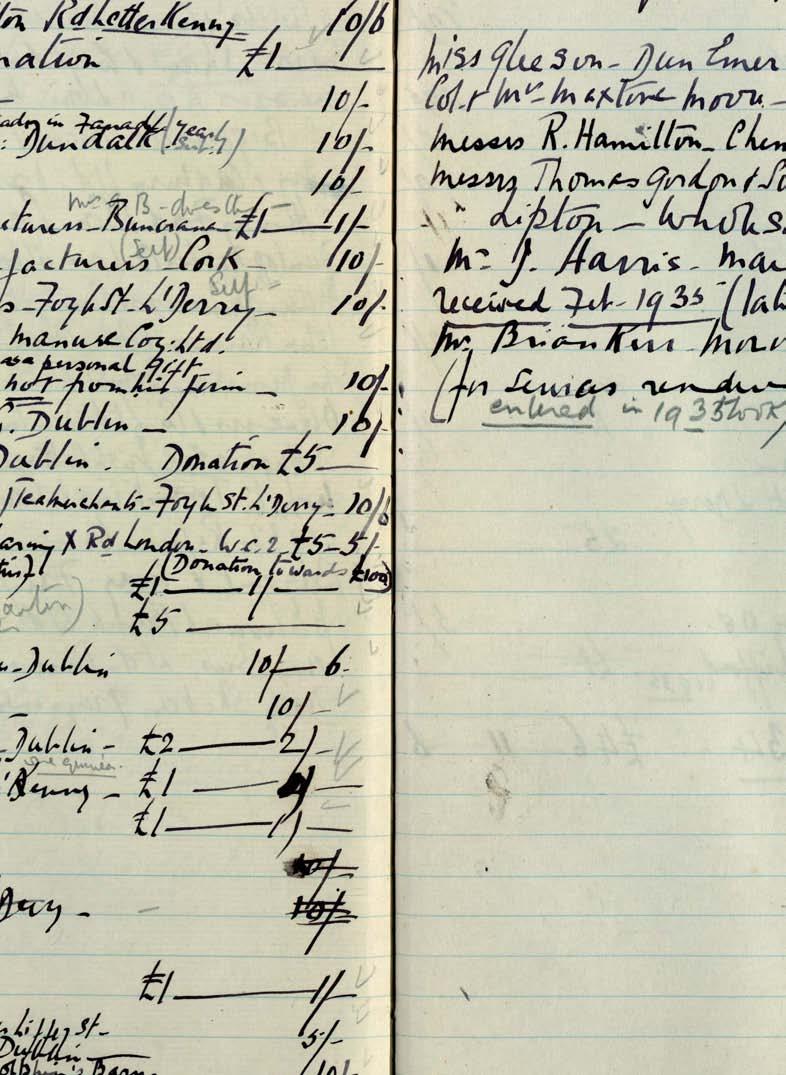 ton Rd LetterKenny 10/6
nation £1
10/-
: Dundalk (year) 10/-
10/-
cturers - Buncrana £1 — 1/-
(Self)
facturers - Cork - 10/-
Self -
s - Foyle St - L'Derry - 10/-
manure Coy: Ltd.
as a personal gift
not from his firm - 10/-
. Dublin - 10/-
Dublin. Donation £5 —
Teamerchants - Foyle St. L'Derry - 10/6
aring X Rd London - W.C.2. £5 - 5/-
(Donation towards £100)
£1 — 1/-
£5 —
- Dublin 10/- 6
10/-
- Dublin - £2 — 2/-
one guinea
Kenny - £1 —
£1 — 1/-
10/-
Derry - 10/-
£1 — 1/-
Liffey St -
Dublin — 5/-
Dolphin's Barn 10/-
Miss Gleeson - Dun Emer
Col. & Mrs Maxtone Moore -
Messrs R. Hamilton - Chem
Messrs Thomas Gordon & So
" Lipton - Wholes
Mr J. Harris - Man
received Feb - 1935 (lat
Mr Brian Kerr
(for Services rendere
entered in 1935 book)